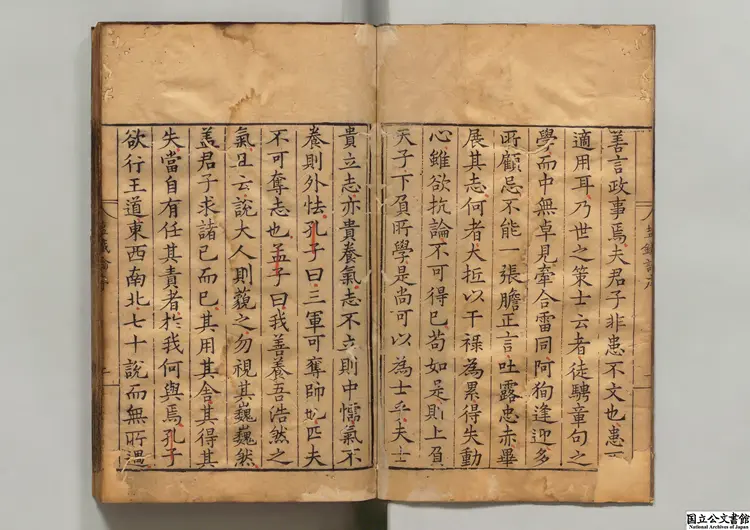 善言政事焉夫君子非患不文也患
適用耳乃世之策士云者徒騁章句之
學而中無卓見牽合雷同阿狥逢迎多
所顧忌不能一張膽正言吐露忠赤畢
展其志何者大抵以干祿為累得失動
心雖欲抗論不可得已苟如是則上負
天子下負所學是尚可以為士乎夫士
貴立志亦貴養氣志不立則中懦氣不
養則外怯孔子曰三軍可奪帥也匹夫
不可奪志也孟子曰我善養吾浩然之
氣且云說大人則藐之勿視其巍巍然
盖君子求諸已而已其用其舍其得其
失當自有任其責者於我何與焉孔子
欲行王道東西南北七十說而無所遇
国立公文書館
National Archives of Japan